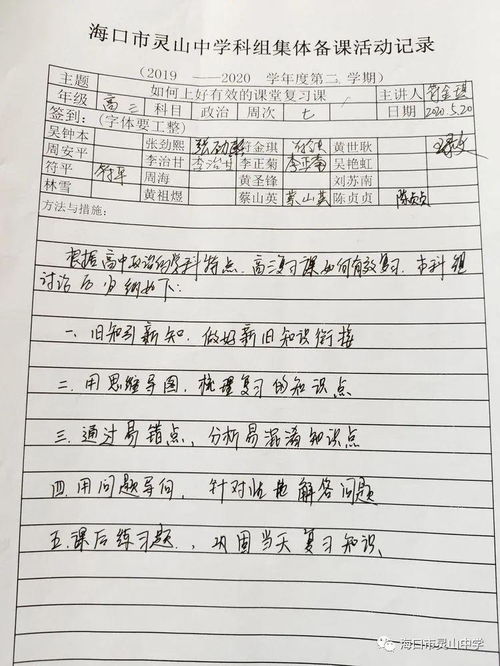 海口市灵山中学科组集体备课活动记录
(2019 ——2020 学年度第二学期)
主题 如何上好有效的课堂复习课 主讲人 符金琪
年级 高三 科目 政治 周次 七 日期 2020.5.20
签到: (字体要工整)
吴钟本 张劲熙 张劲熙 符金琪 黄世耿
周安平 李治甘 李治甘 李正菊 李正菊 吴艳虹
符平 符平 周海 黄圣锋 刘苏南
林雪 黄祖煜 蔡山英 蔡山英 陈贞贞 陈贞贞
方法与措施:
根据高中政治的学科特点,高三复习课如何有效复习,本科组
讨论后归纳如下:
一、旧知引新知,做好新旧知识衔接
二、用思维导图,梳理复习的知识点
三、通过易错点,分析易混淆知识点
四、用问题导向,针对性地解答问题
五、课后练习题,巩固当天复习知识
海口市灵山中学